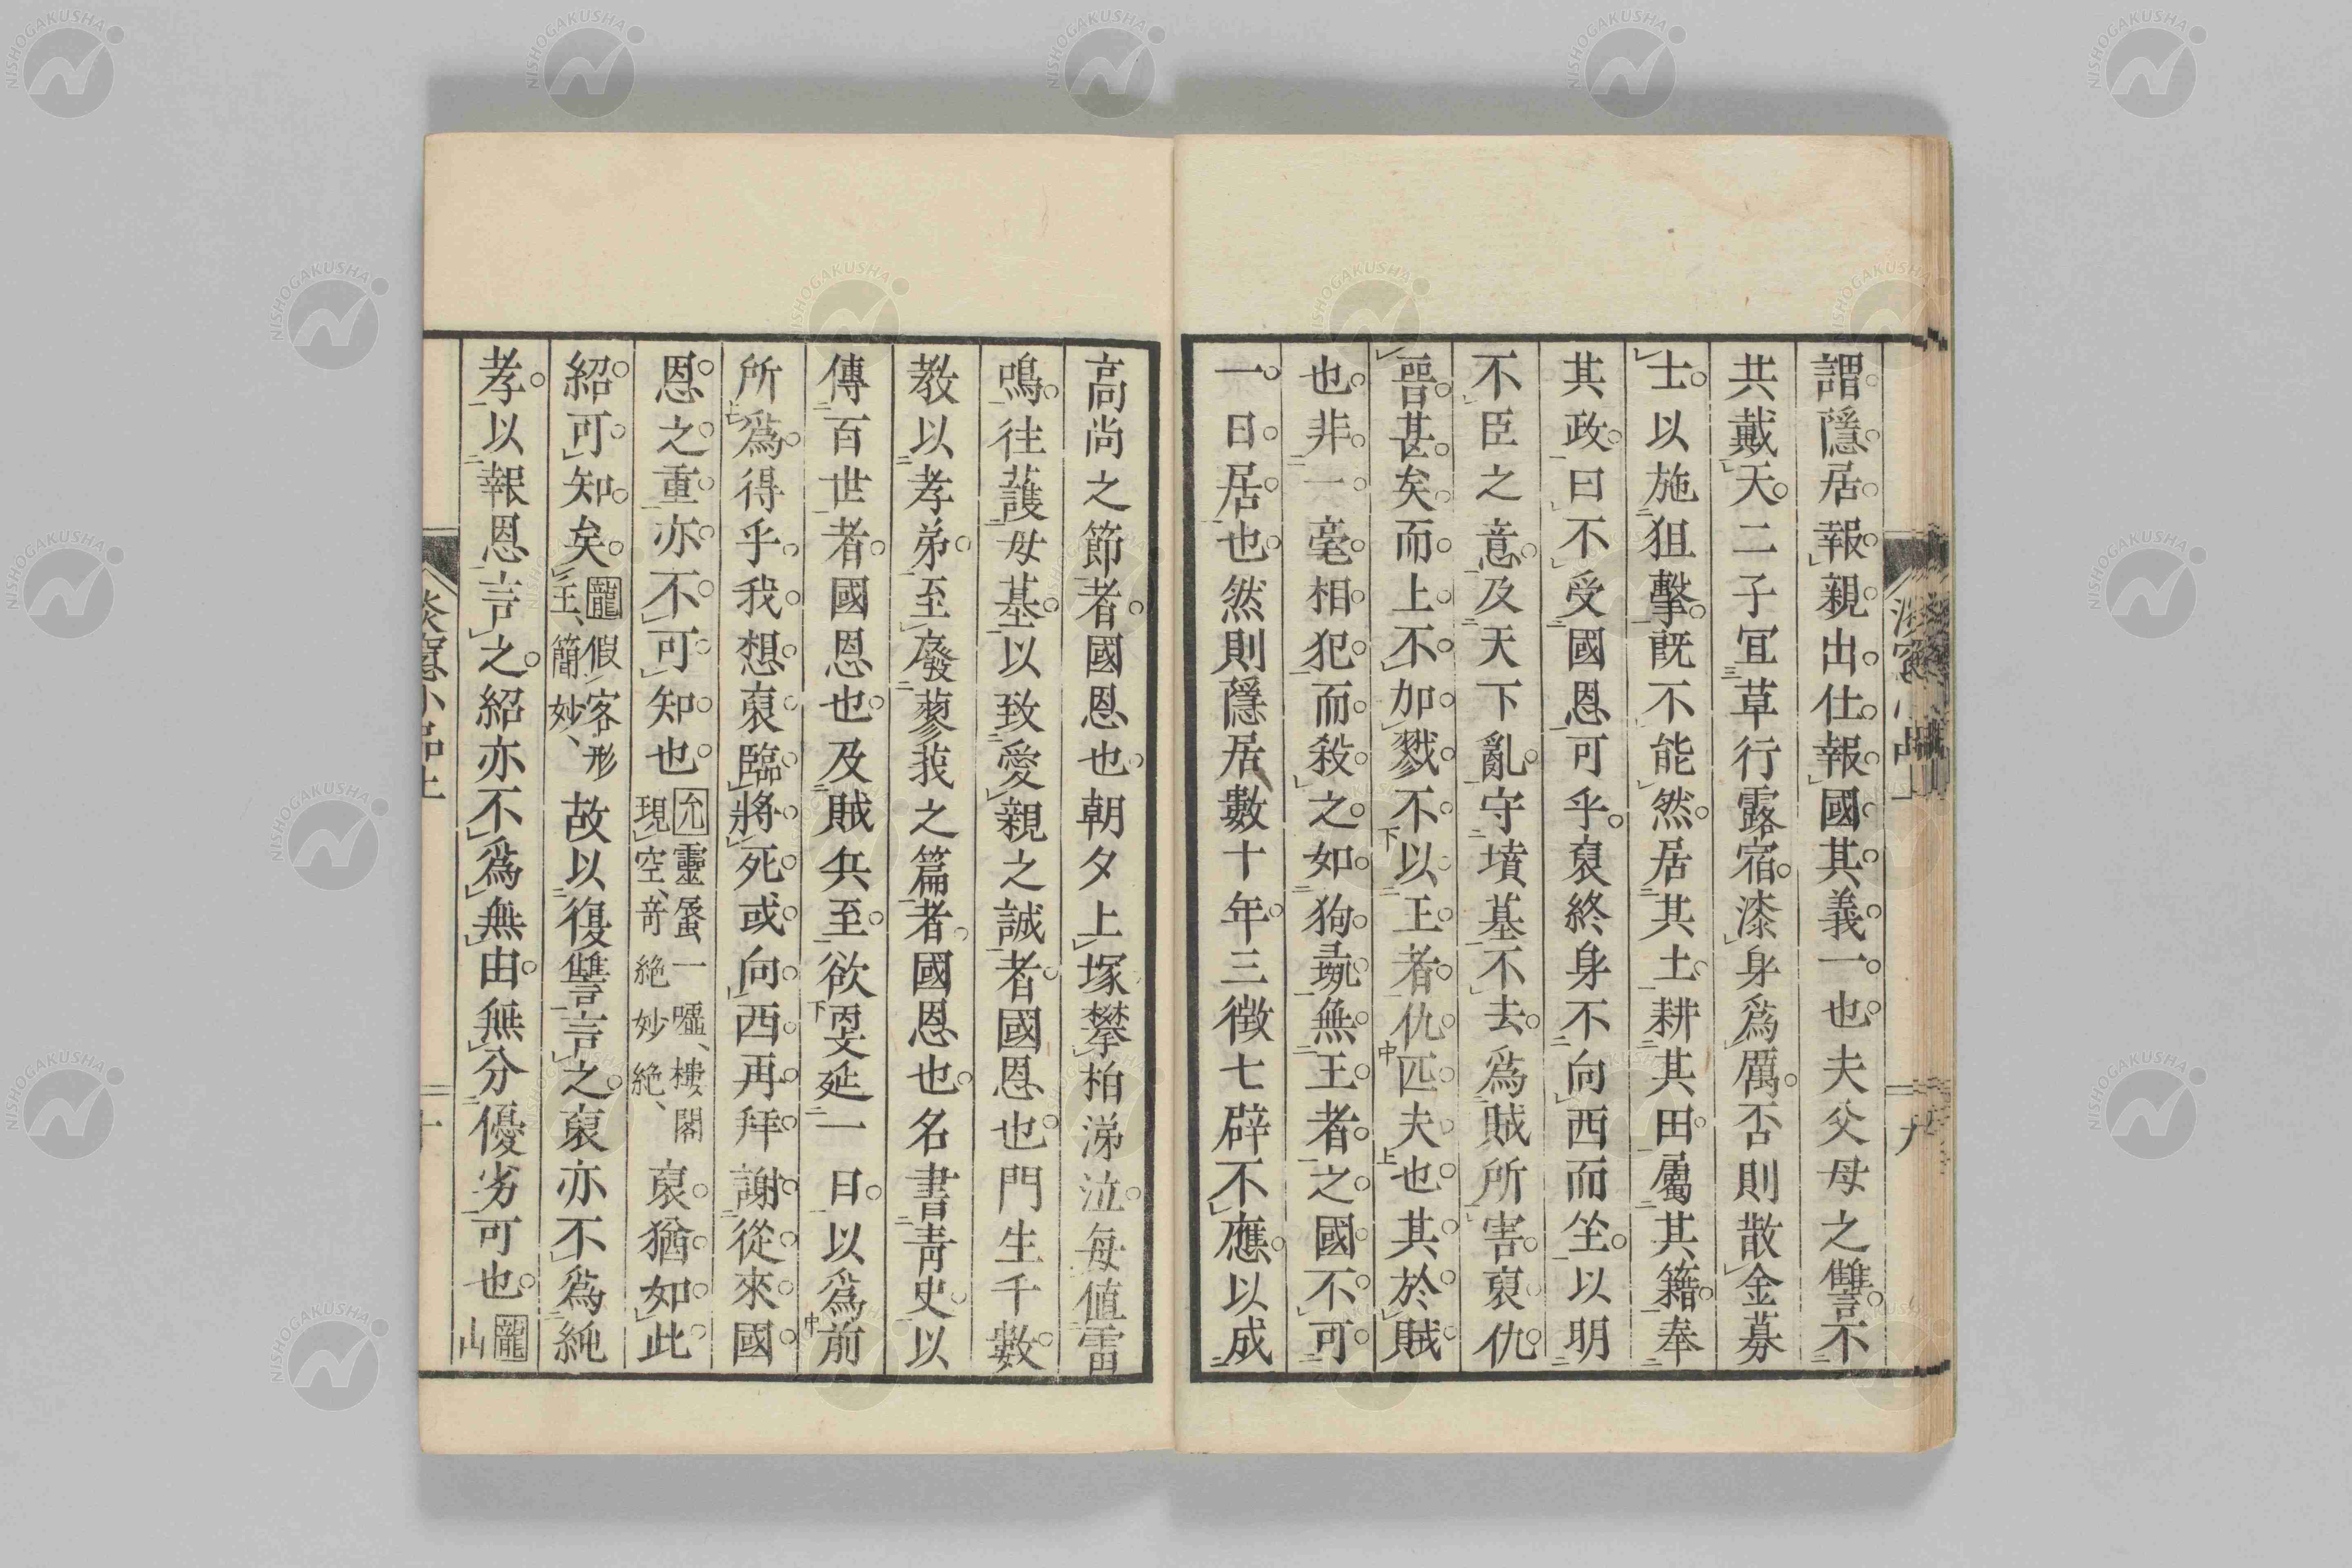 謂隱居報親出仕報國其義一也夫父母之讐不
共戴天二子宜草行露宿漆身爲厲否則散金募
士以施狙擊既不能然居其土耕其田屬其籍奉
其政曰不受國恩可乎裒終身不向西而坐以明
不臣之意及天下亂守墳墓不去爲賊所害裒仇
晉甚矣而上不加戮不以王者仇匹夫也其於賊
也非一毫相犯而殺之如狗彘無王者之國不可
一日居也然則隱居數十年三徴七辟不應以成
高尚之節者國恩也朝夕上塚攀柏涕泣每値雷
鳴往護母基以致愛親之誠者國恩也門生千數
教以孝弟至廢蓼莪之篇者國恩也名書青史以
傳百世者國恩也及賊兵至欲延一日以爲前
所爲得乎我想裒臨將死或向西再拜謝從來國
恩之重亦不可知也
允靈蜃一噓、樓閣
現空、奇絶妙絶、
裒猶如此
紹可知矣
龍假客形
主、簡妙、
故以復讐言之裒亦不爲純
孝以報恩言之紹亦不爲無由無分優劣可也
龍
山
NISHOGAKUSHA